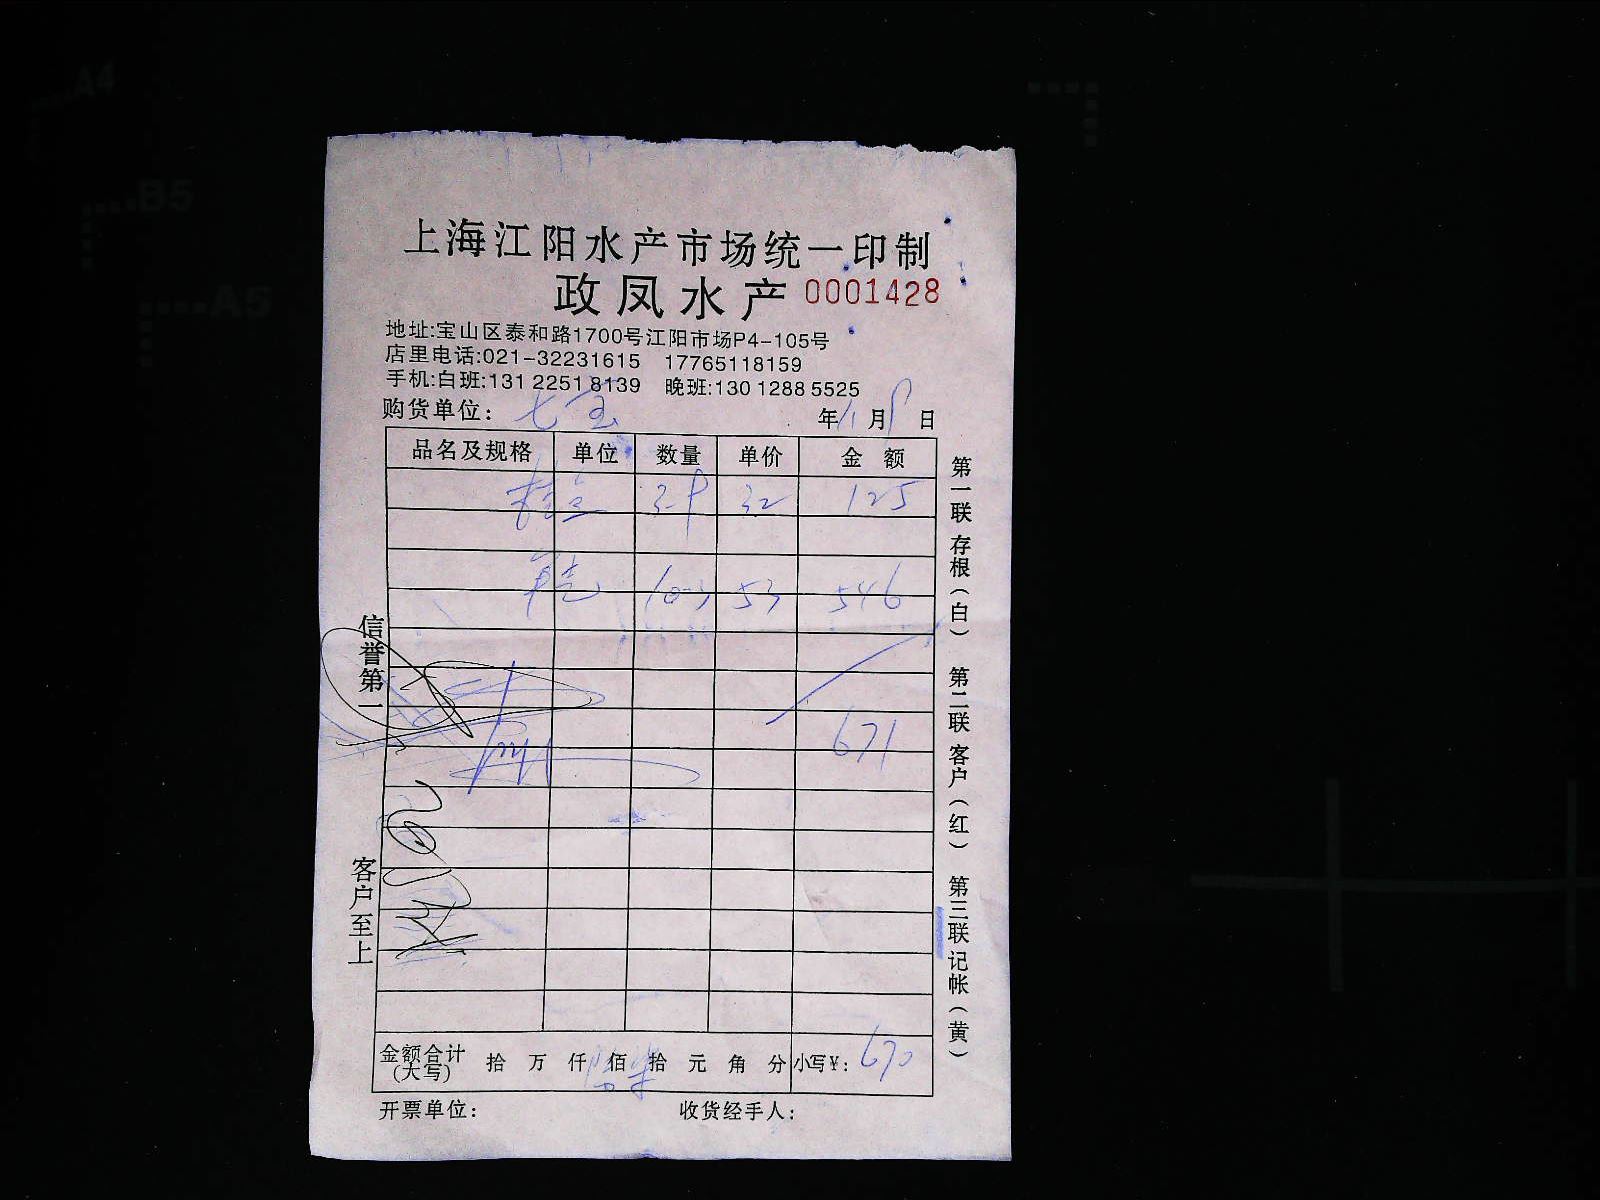 上海江阳水产市场统一印制
政凤水产 0001428
地址:宝山区泰和路1700号江阳市场P4-105号
店里电话:021-32231615 17765118159
手机:白班:131 2251 8139 晚班:130 1288 5525
购货单位: 七宝 年 11 月 日
品名及规格 单位 数量 单价 金额
32 125
53 546
671
金额合计(大写) 拾 万 仟 佰 拾 元 角 分 小写¥: 670
开票单位: 收货经手人:
信誉第一 客户至上
第一联 存根(白) 第二联 客户(红) 第三联 记帐(黄)
A4
B5
A5